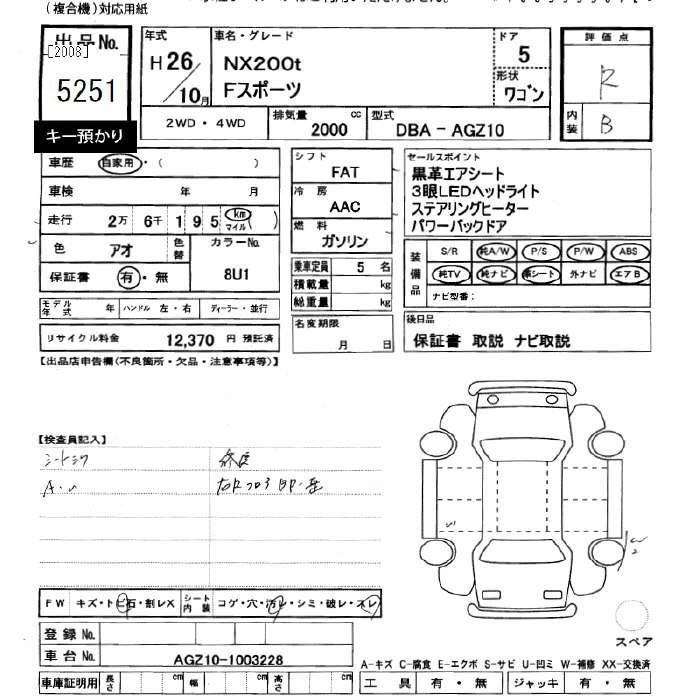 (複合機)対応用紙
出品No. [2008] 5251
キー預かり
年式 H26/10月
車名・グレード NX200t Fスポーツ
ドア 5
形状 ワゴン
2WD・4WD
排気量 2000 cc
型式 DBA - AGZ10
評価点 R
内装 B
車歴 自家用・( )
車検 年 月
走行 2万 6千 1 9 5 (km マイル)
色 アオ 色替 カラーNo. 8U1
保証書 有・無
モデル年式 年 ハンドル 左・右 ディーラー・並行
リサイクル料金 12,370 円 預託済
シフト FAT
冷房 AAC
燃料 ガソリン
乗車定員 5 名
積載量 kg
総重量 kg
名変期限 月 日
セールスポイント
黒革エアシート
3眼LEDヘッドライト
ステアリングヒーター
パワーバックドア
装備品 S/R 純A/W P/S P/W ABS
純TV 純ナビ 革シート 外ナビ エアB
ナビ型番:
後日品
保証書 取説 ナビ取説
【出品店申告欄(不良箇所・欠品・注意事項等)】
【検査員記入】
シートシワ
FW キズ・トビ石・割レX シート内装 コゲ・穴・汚レ・シミ・破レ・スレ
登録No.
車台No. AGZ10-1003228
車庫証明用 長さ cm 幅 cm 高さ cm
スペア
A-キズ C-腐食 E-エクボ S-サビ U-凹ミ W-補修 XX-交換済
工具 有・無 ジャッキ 有・無